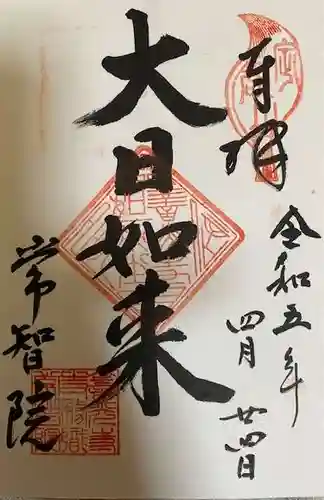 奉拝
令和五年
四月廿四日
大日如来
常智院